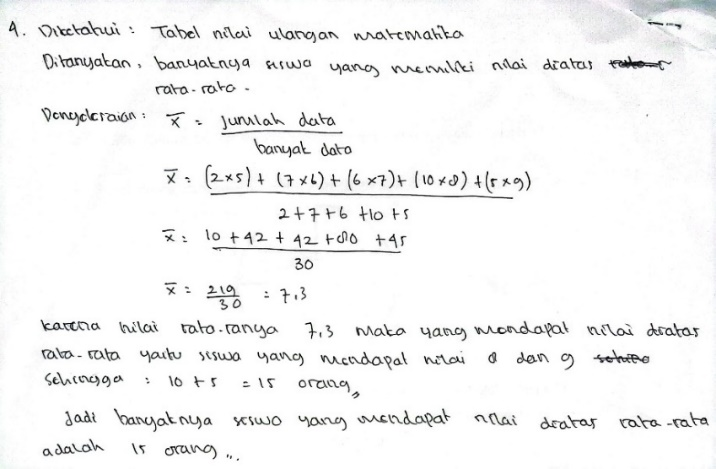 4. Diketahui : Tabel nilai ulangan matematika
Ditanyakan : banyaknya siswa yang memiliki nilai diatas
rata-rata.
Penyelesaian : x̄ = Jumlah data
banyak data
x̄ = (2×5) + (7×6) + (6×7) + (10×8) + (5×9)
2+7+6+10+5
x̄ = 10 + 42 + 42 + 80 + 45
30
x̄ = 219
30 = 7,3
karena nilai rata-ranya 7,3 maka yang mendapat nilai diatas
rata-rata yaitu siswa yang mendapat nilai 8 dan 9
Sehingga : 10 + 5 = 15 orang,
Jadi banyaknya siswa yang mendapat nilai diatas rata-rata
adalah 15 orang...